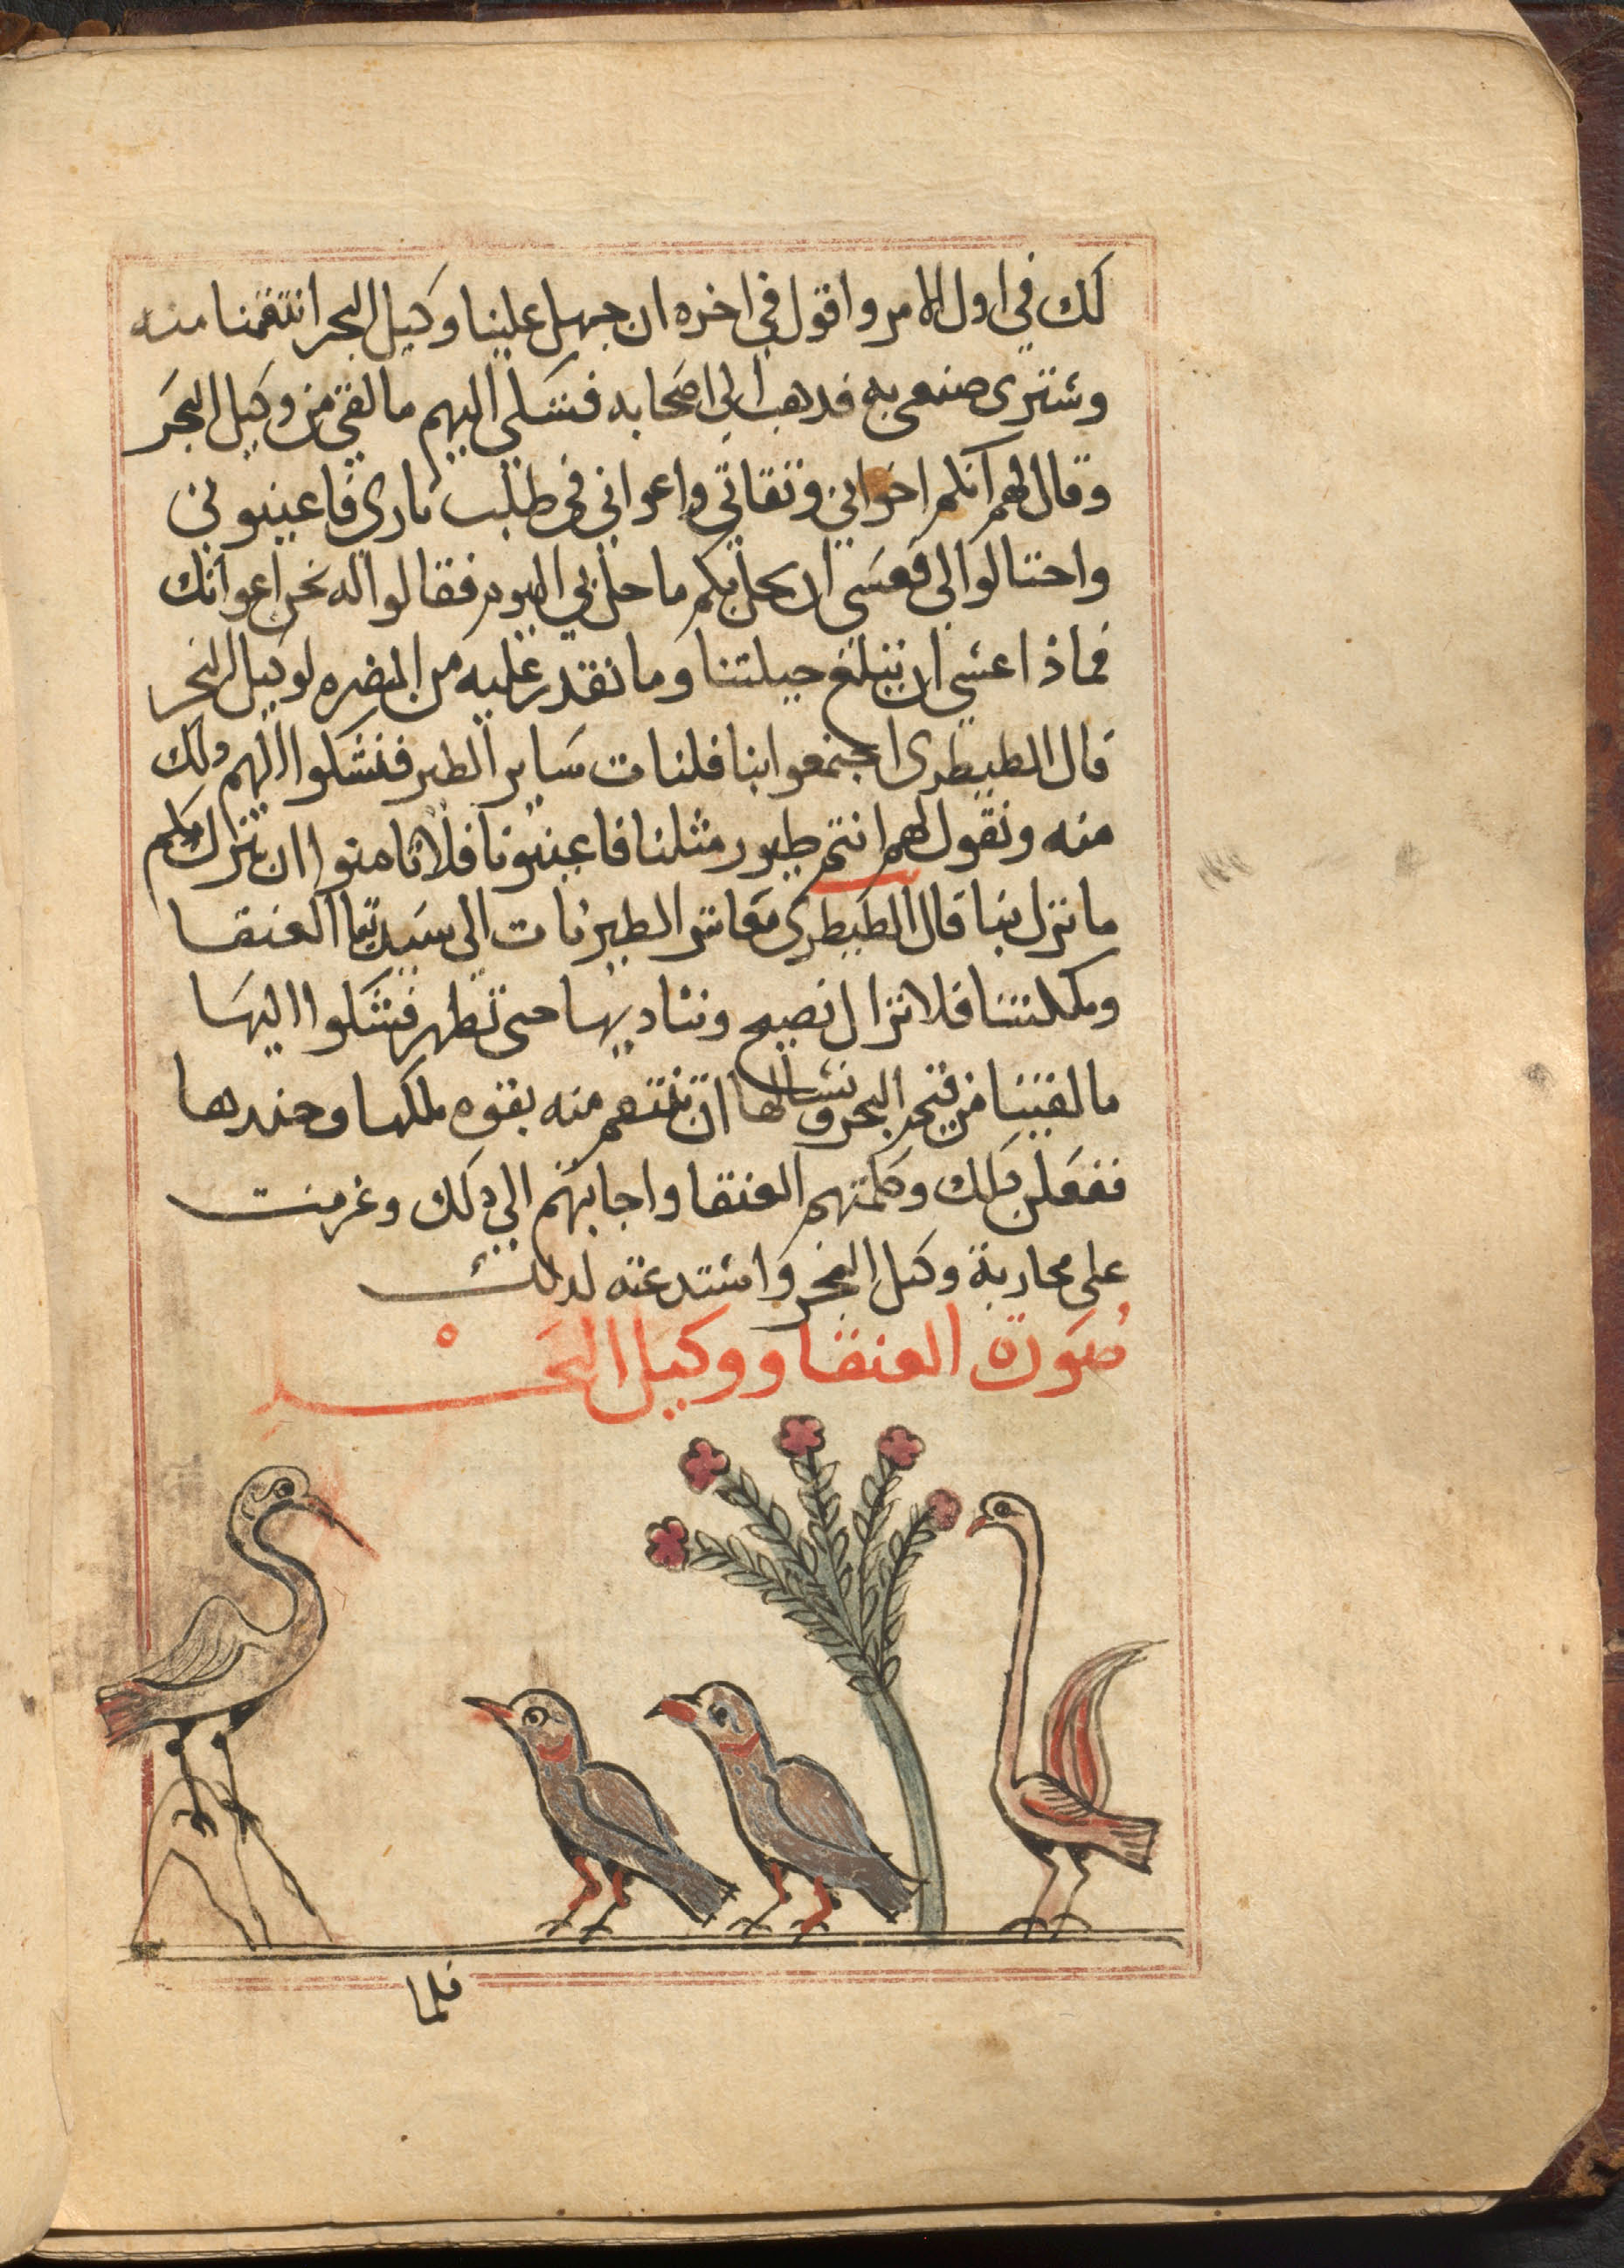 لك في اول الامر واقول في اخره ان جهل علينا وكيل البحر انتقمنا منه
وسترى صنعي به فدهب الى اصحابه فشكى اليهم ما لقي من وكيل البحر
وقال لهم انكم اخواني وثقاتي واعواني في طلب ثاري فاعينوني
واحتالوا لي فعسى ان يحل بكم ما حل بي اليوم فقالوا له نحن اعوانك
فماذا عسى ان تبلغ حيلتنا وما نقدر عليه من المضره لوكيل البحر
قال الطيطوى اجتمعوا بنا فلنات ساير الطير فنشكوا الهم دلك
منه ونقول لهم انتم طيور مثلنا فاعينونا فلا تامنوا ان ينزل بكم
ما نزل بنا قال الطيطرى معاشر الطير نات الى سيدتنا العنقا
وملكتنا فلا نزال نصيح ونناديها حتى تظهر فنشكوا اليها
ما لقينا من البحر ونسالها ان تنتقم منه بقوه ملكها وجندها
ففعلن دلك وكلمتهم العنقا واجابتهم الى دلك وعزمت
على محاربة وكيل البحر واستدعته لدلك
صورة العنقا ووكيل البحر
فلما